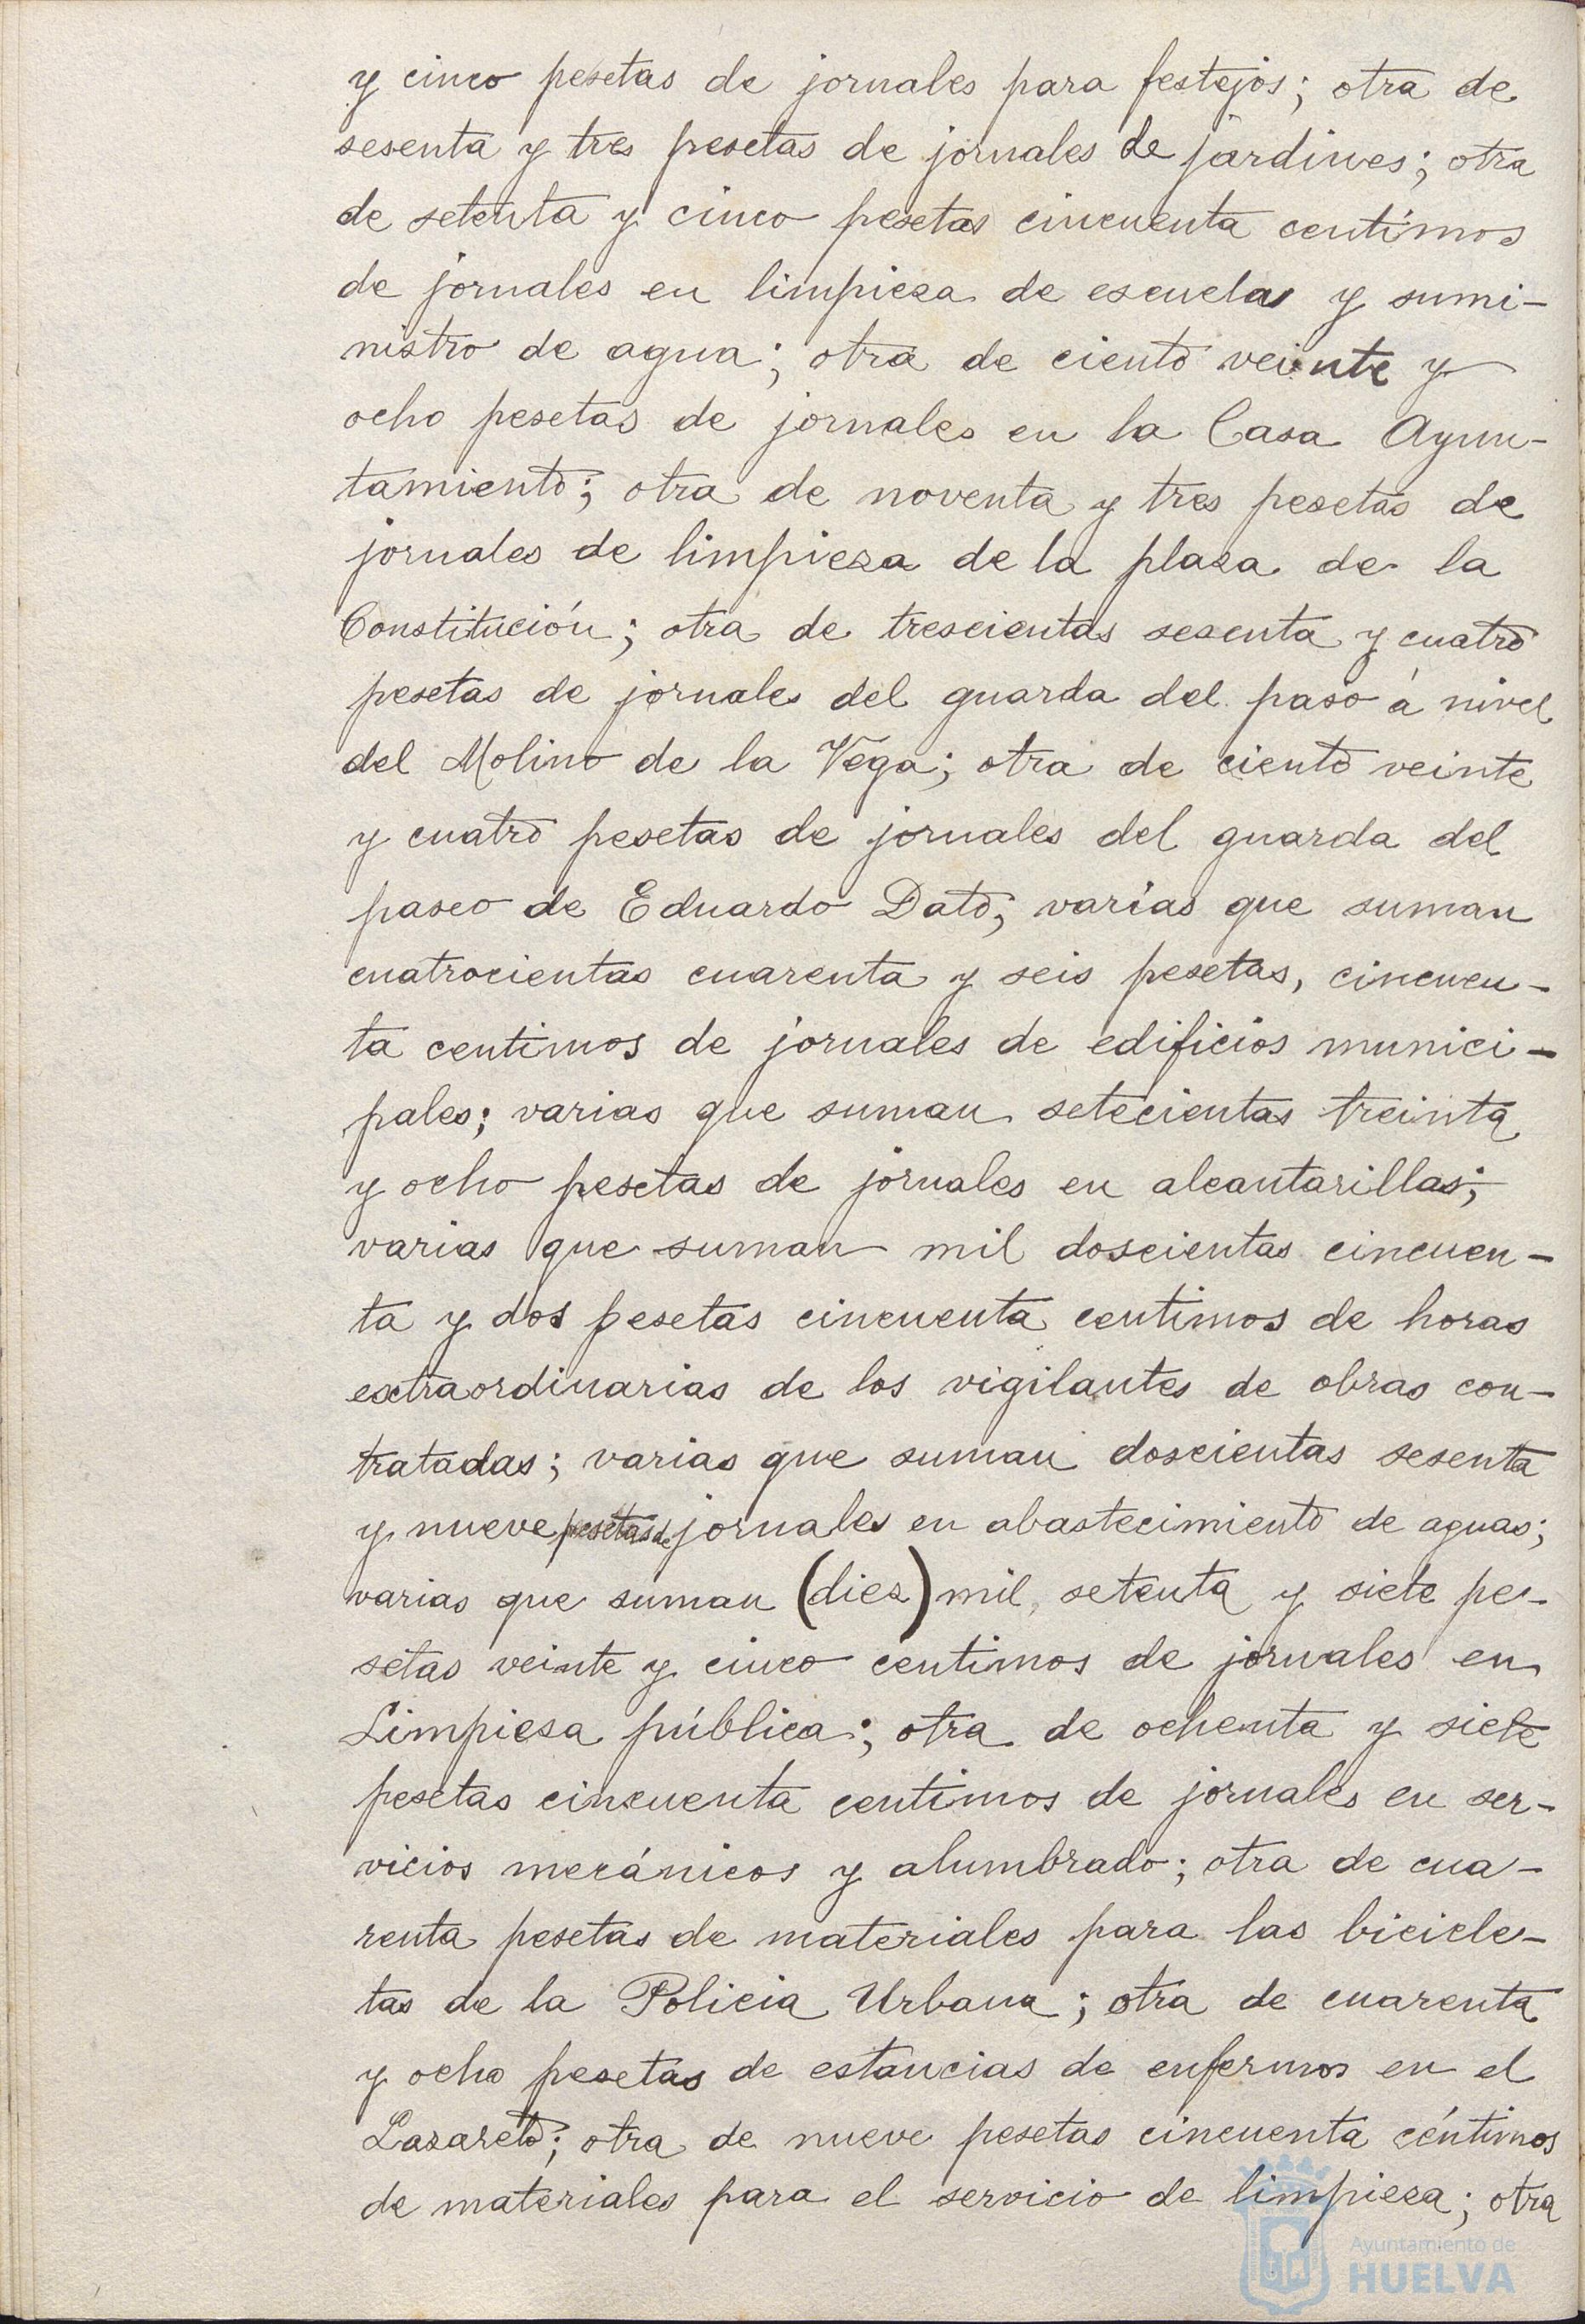 y cinco pesetas de jornales para festejos; otra de
sesenta y tres pesetas de jornales de jardines; otra
de setenta y cinco pesetas cincuenta centímos
de jornales en limpieza de escuelas y sumi-
nistro de agua; otra de ciento veinte y
ocho pesetas de jornales en la Casa Ayun-
tamiento; otra de noventa y tres pesetas de
jornales de limpieza de la plaza de la
Constitución; otra de trescientas sesenta y cuatro
pesetas de jornales del guarda del paso á nivel
del Molino de la Vega; otra de ciento veinte
y cuatro pesetas de jornales del guarda del
paseo de Eduardo Dato; varias que suman
cuatrocientas cuarenta y seis pesetas, cincuen-
ta centimos de jornales de edificios munici-
pales; varias que suman setecientas treinta
y ocho pesetas de jornales en alcantarillas;
varias que suman mil doscientas cincuen-
ta y dos pesetas cincuenta centimos de horas
extraordinarias de los vigilantes de obras con-
tratadas; varias que suman doscientas sesenta
y nueve pesetas de jornales en abastecimiento de aguas;
varias que suman (diez) mil, setenta y siete pe-
setas veinte y cinco centimos de jornales en
Limpieza pública; otra de ochenta y siete
pesetas cincuenta centimos de jornales en ser-
vicios mecánicos y alumbrado; otra de cua-
renta pesetas de materiales para las bicicle-
tas de la Policia Urbana; otra de cuarenta
y ocho pesetas de estancias de enfermos en el
Lazareto; otra de nueve pesetas cincuenta céntimos
de materiales para el servicio de limpieza; otra
Ayuntamiento de
HUELVA